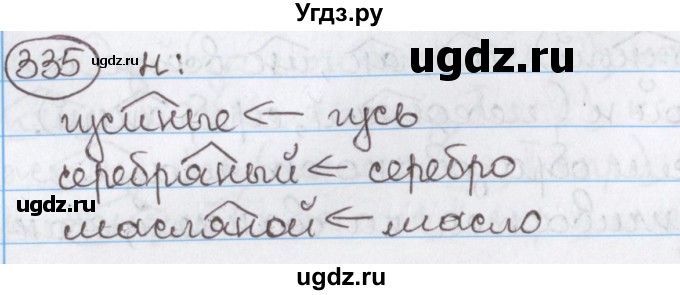 Угдз.ру
335 н:
gdz.ru
ugdz.ru
гусиные ← гусь
серебряный ← серебро
ugdz.ru
масляной ← масло
ugdz.ru
ugdz.ru